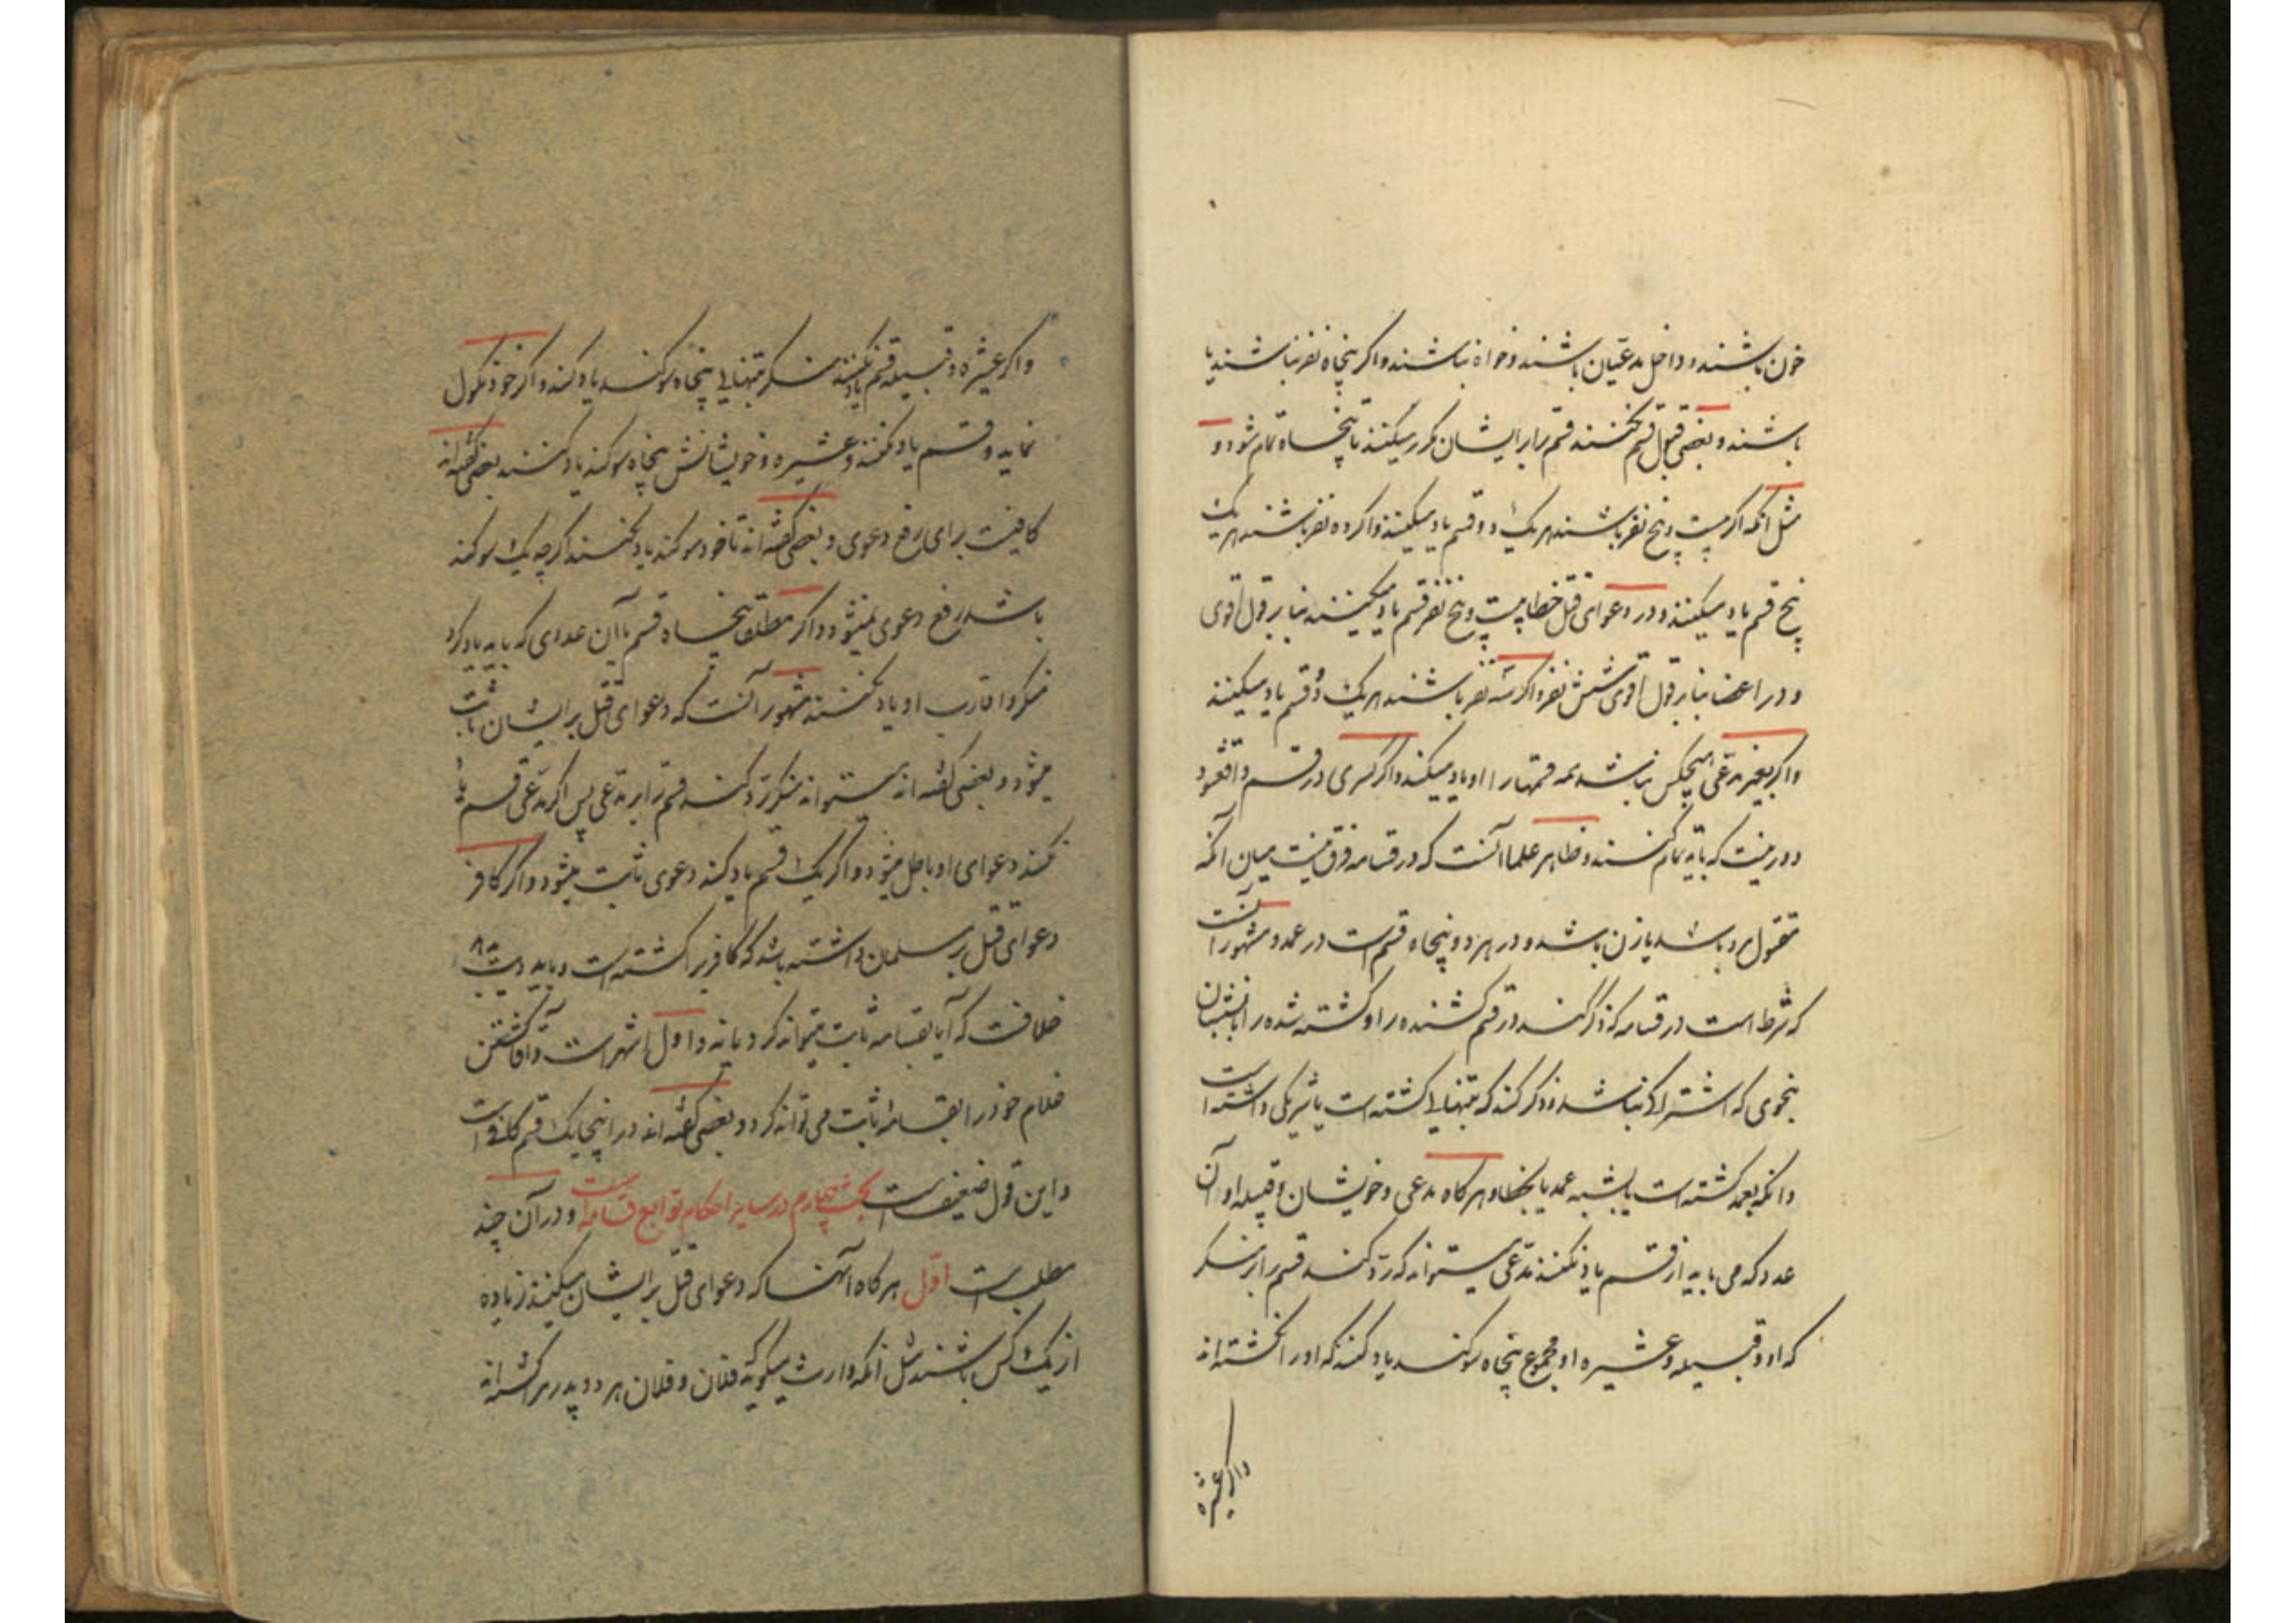 خون باشند و داخل مدعیان باشند و خواه نباشند و اکر پنجاه نفر نباشند یا
باشند و بعضی قبول قسم نکنند قسم را بر ایشان مکرر میکنند تا پنجاه تمام شود و
مثل آنکه اکر بیست و پنج نفر باشند هر یک دو قسم یاد میکنند و اکر ده نفر باشند هر یک
پنج قسم یاد میکنند و در دعوای قتل خطا بیست و پنج نفر قسم یاد میکنند بنا بر قول اقوی
و در اعضا بنا بر قول اقوی شش نفر و اکر سه نفر باشند هر یک دو قسم یاد میکنند
و اکر بغیر مدعی هیچکس نباشد همه قسمها را او یاد میکند و اکر کسری در قسم واقع شود
دور نیست که باید تمام کنند و ظاهر علما آنست که در قسامه فرق نیست میان آنکه
مقتول مرد باشد یا زن باشد و در هر دو پنجاه قسم است در عمد و مشهور آنست
که شرط است در قسامه که ذکر کنند در قسم کشنده را و کشته شده را با نسبشان
بنحوی که اشتراکی نباشد و ذکر کنند که بتنهایی کشته است یا شریکی داشته است
و آنکه بعمد کشته است یا بشبه عمد یا بخطا و هر کاه مدعی و خویشان و قبیله او آن
عدد که می باید از قسم یاد نکنند مدعی میتواند که رد کند قسم را بر منکر
که او و قبیله و عشیره او مجموع پنجاه سوکند یاد کنند که او را نکشته اند
و اکر عشیره
و اکر عشیره و قبیله قسم یاد نکنند منکر بتنهایی پنجاه سوکند یاد کند و اکر خود نکول
نماید و قسم یاد نکند و عشیره و خویشانش پنجاه سوکند یاد کنند بعضی کفته اند
کافیست برای رفع دعوی و بعضی کفته اند تا خود سوکند یاد نکند اکرچه یک سوکند
باشد رفع دعوی نمیشود و اکر مطلقا پنجاه قسم یا آن عددی که باید یاد کرد
منکر و اقارب او یاد نکنند مشهور آنست که دعوای قتل بر ایشان ثابت
میشود و بعضی کفته اند میتواند منکر رد کند قسم را بر مدعی پس اکر مدعی قسم یاد
نکند دعوای او باطل میشود و اکر یک قسم یاد کند دعوی ثابت میشود و اکر کافر
دعوای قتل بر مسلمان داشته باشد که کافری را کشته است و باید دیت
خلافست که آیا بقسامه ثابت میتواند کرد یا نه و اول اشهر است و آقا کشتن
غلام خود را بقسامه ثابت می تواند کرد و بعضی کفته اند در اینجا یک قسم کافی است
و این قول ضعیف است بحث چهارم در سایر احکام توابع قسامه است و در آن چند
مطلب است اول هر کاه آنها که دعوای قتل بر ایشان میکنند زیاده
از یک کس باشند مثل آنکه وارث میکوید فلان و فلان هر دو پدر مرا کشته اند